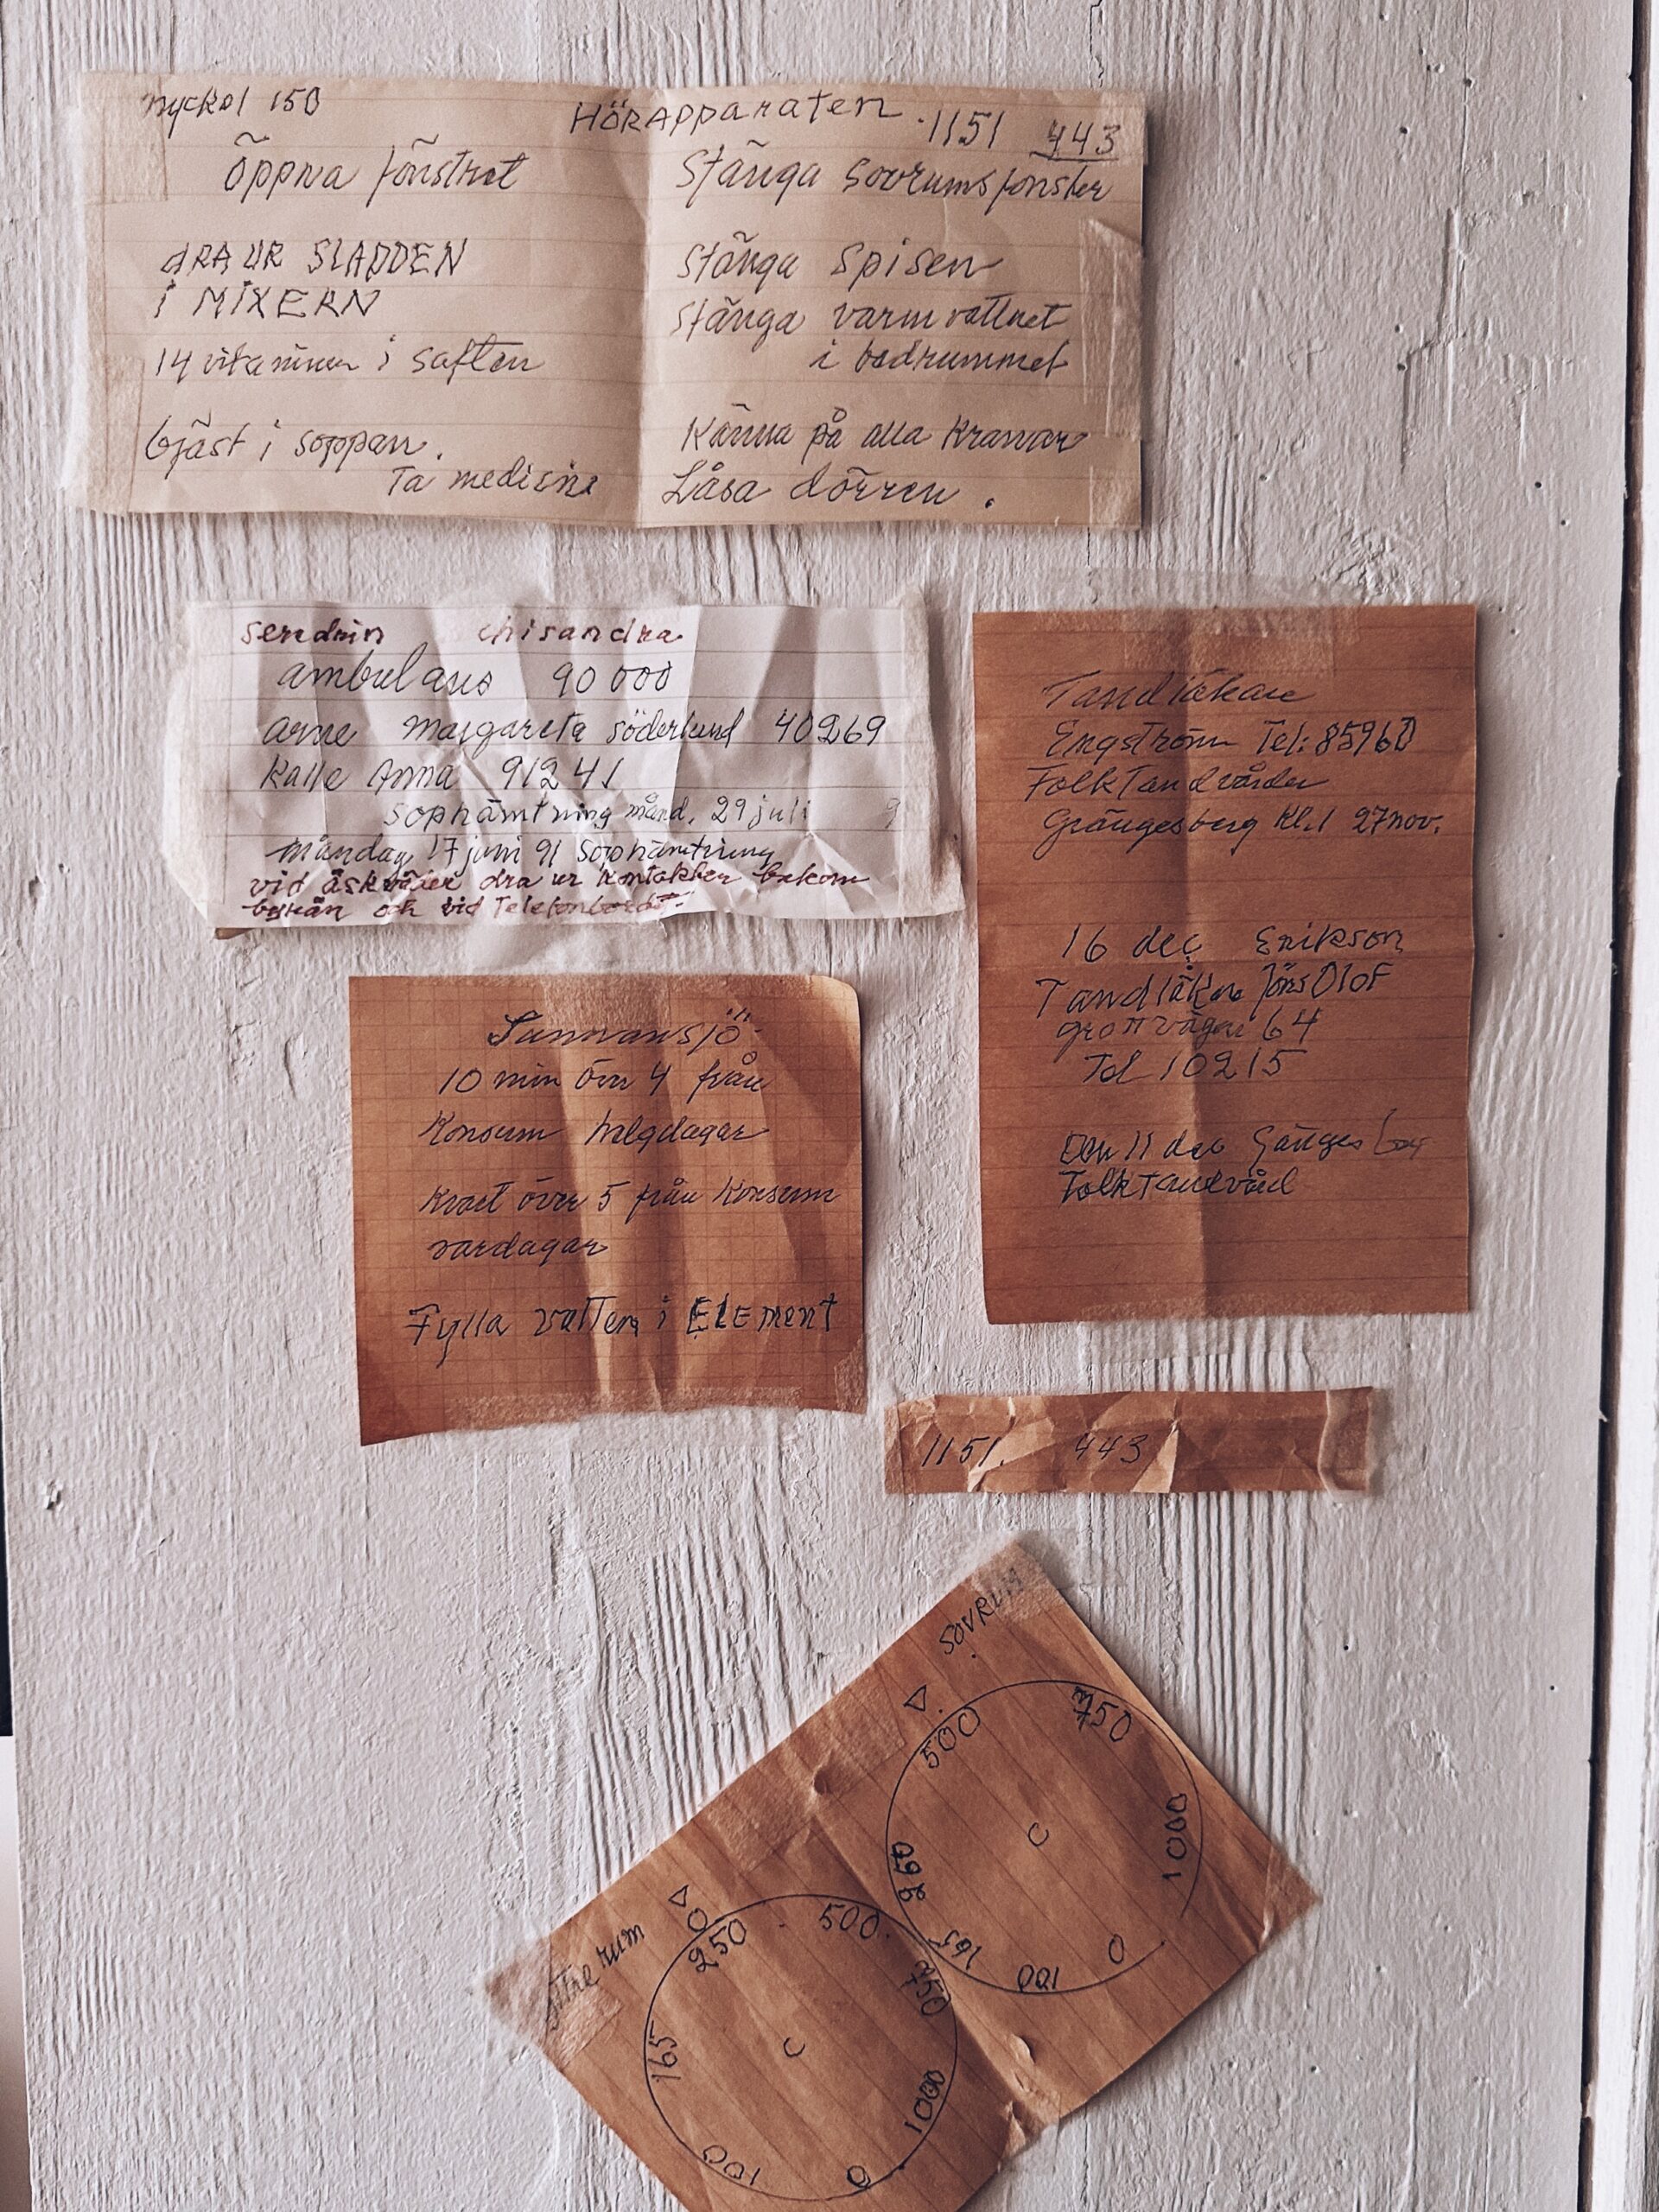 nyckel 150
HÖRAPPARATEN .1151 443
Öppna fönstret
dRA UR SLADDEN
i MIXERN
14 vitaminer i saften
Gjäst i soppan.
Ta medisine
Stänga sovrumsfönster
Stänga Spisen
Stänga varmvattnet
i badrummet
Känna på alla Kranar
Låsa dörren.
chisandra
ambulans 90 000
Arne Margareta Söderlund 40269
Kalle Anna 91241
Sophämtning månd. 29 juli 9
Måndag 17 juni 91 Sophämtning
vid åskväder dra ur kontakter bakom
och vid Telefonbordet.
Tandläkare
Engström Tel: 85960
FolkTandvården
Grängesberg Kl.1 27 nov.
16 dec Erikson
Tandläkare Jöns Olof
64
Tel 10215
Den 11 dec
FolkTandvård
Sunnansjö
10 min över 4 från
Konsum helgdagar
Kvart över 5 från Konsum
vardagar
Fylla vatten i ELEMENT
1151. 443
SOVRUM
500
750
1000
0
100
165
250
rum
0
250
500
750
1000
0
100
165